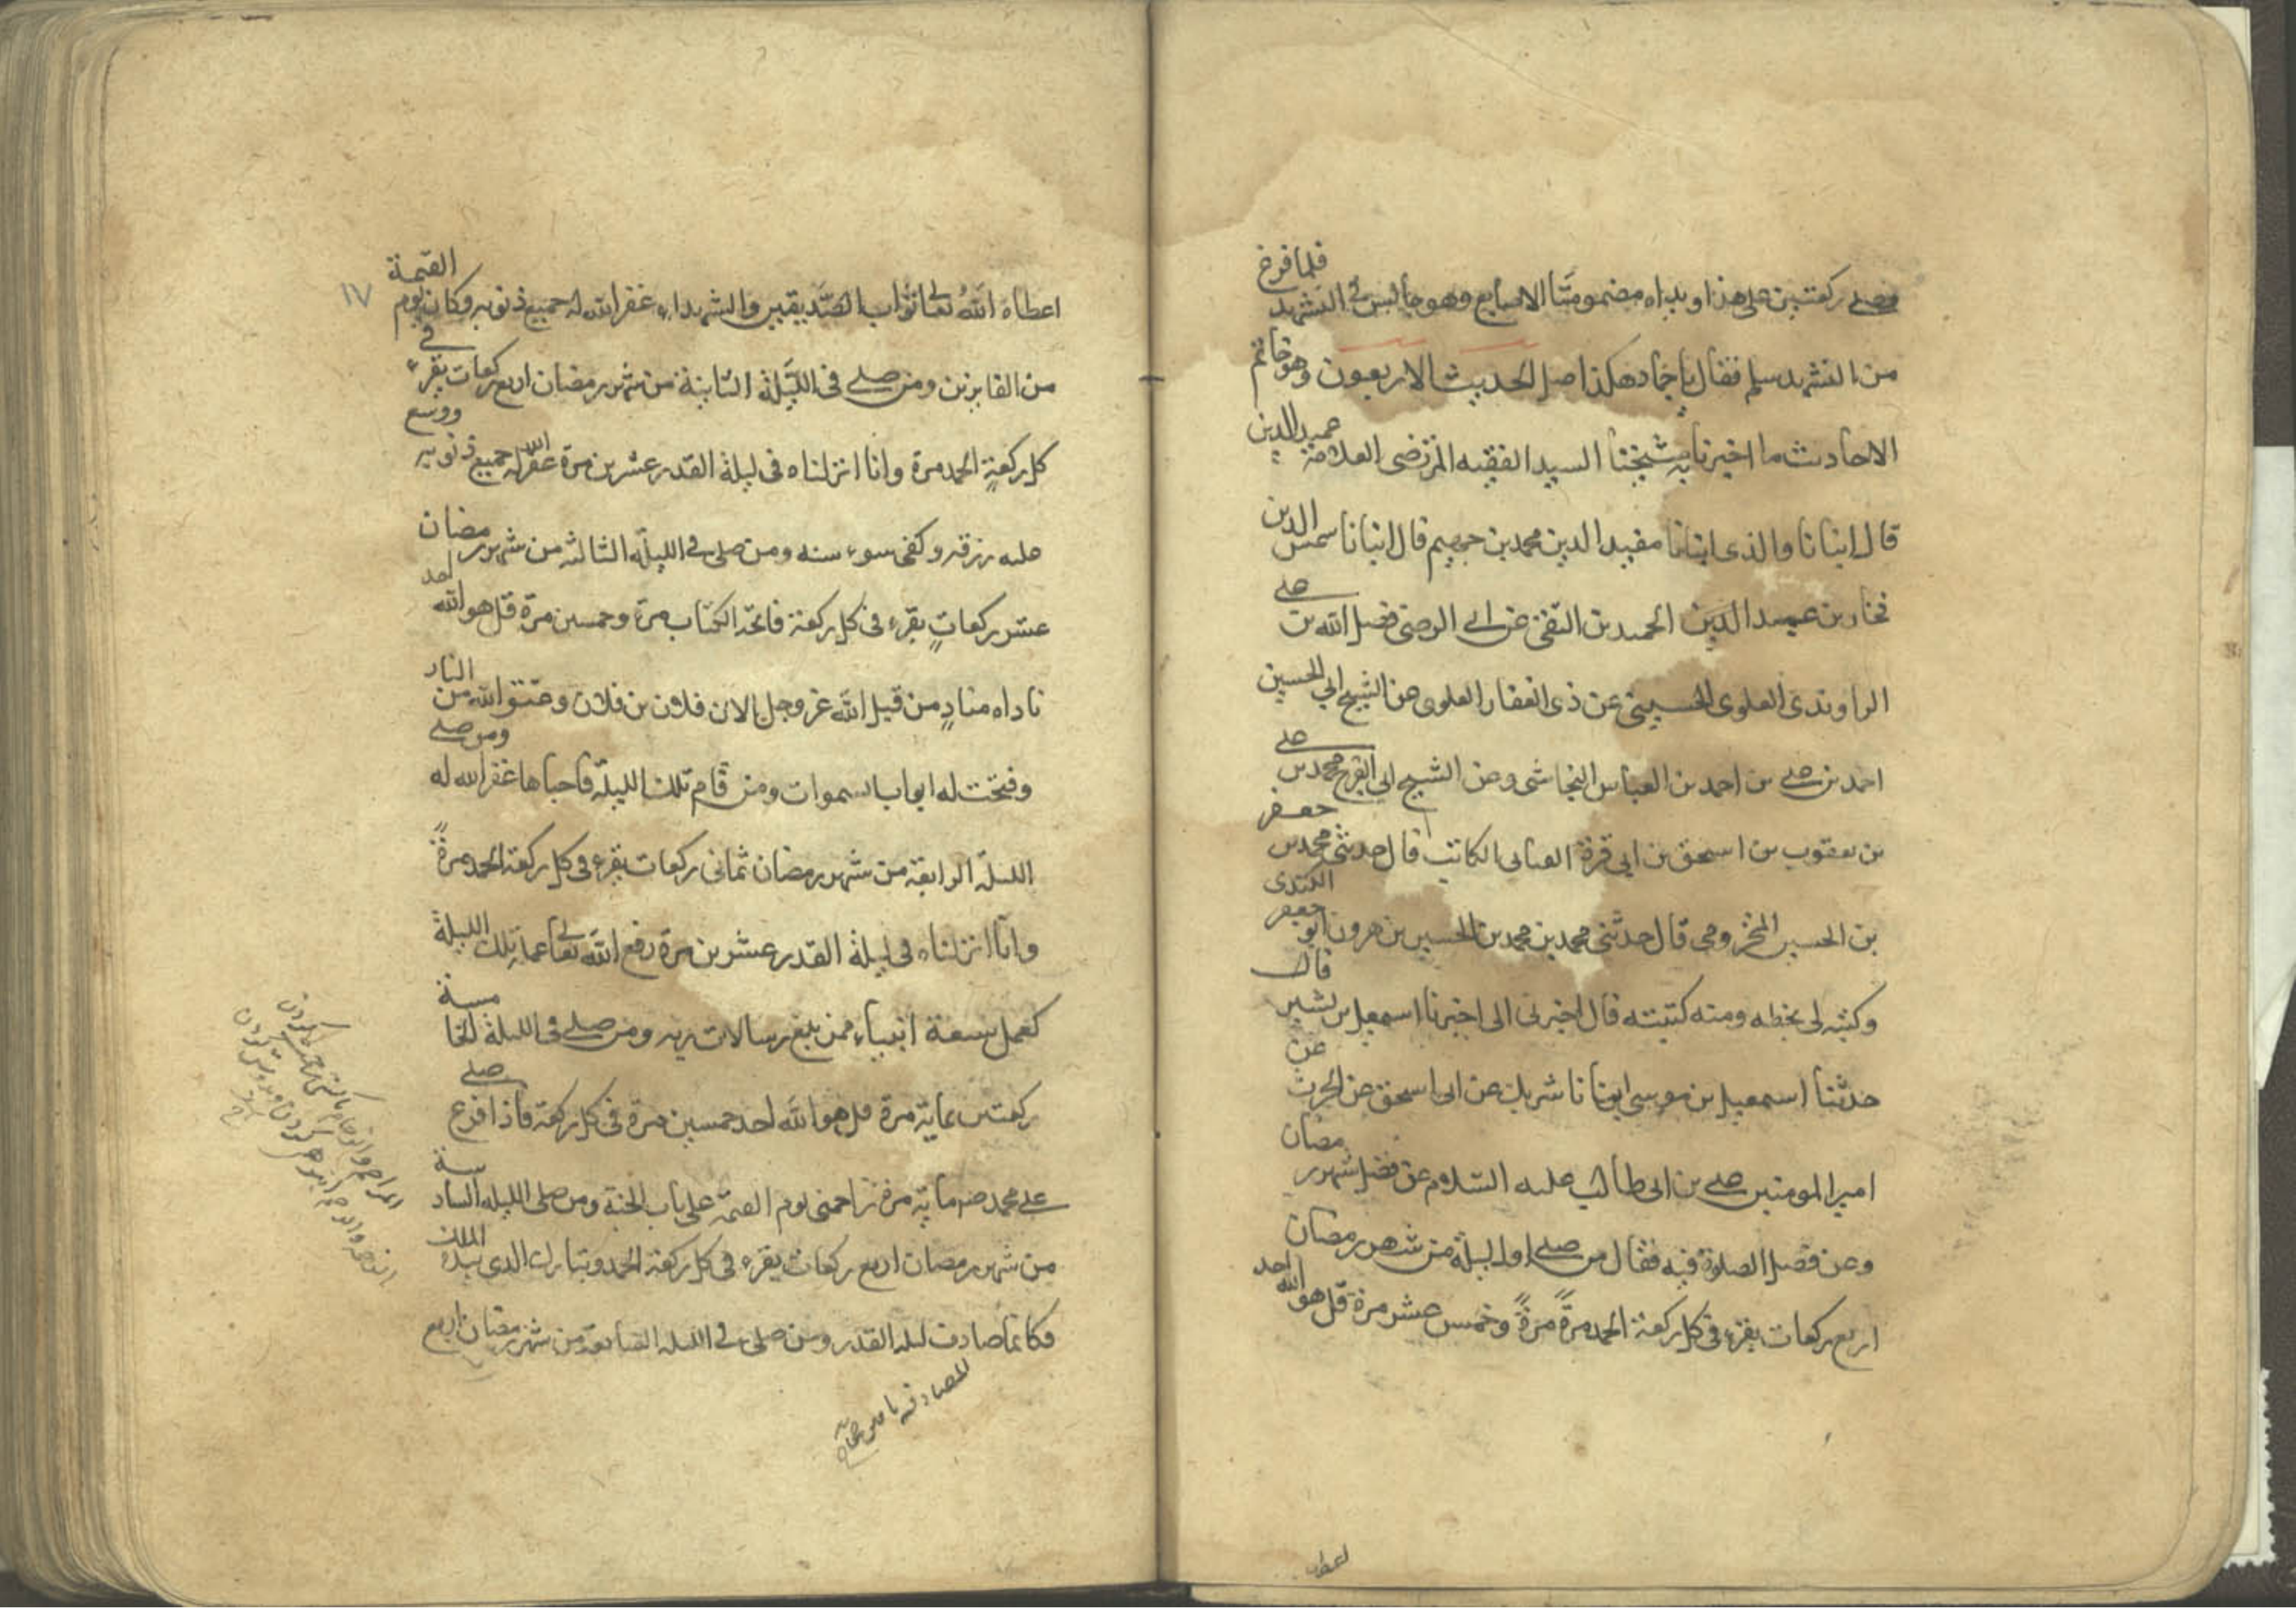 فصلى ركعتين على هذا ويداه مضمومتا الاصابع وهو جالس في التشهد فلما فرغ
من التشهد سلم فقال يا حماد هكذا صل الحديث الاربعون وهو خاتم
الاحاديث ما اخبرنا به شيخنا السيد الفقيه المرتضى العلامة عميد الدين
قال انبانا والدى انبانا مفيد الدين محمد بن جهيم قال انبانا شمس الدين
فخار بن الحميد بن التقى عن ابى الرضى فضل الله بن على
الراوندى العلوى الحسينى عن ذى الفقار العلوى عن الشيخ ابى الحسين
احمد بن على بن احمد بن العباس النجاشى وعن الشيخ ابى الفرج محمد بن على
بن يعقوب بن اسحق بن ابى قرة الكاتب قال حدثنى محمد بن جعفر
بن الحسين المخزومى قال حدثنى محمد بن محمد بن الحسين بن هرون ابو جعفر الكندى
وكتبه لى بخطه ومنه كتبته قال اخبرنى ابى اخبرنا اسمعيل بن بشير قال
حدثنا اسمعيل بن موسى انبانا شريك عن ابى اسحق عن الحرث عن
امير المومنين على بن ابى طالب عليه السلام عن فضل شهر رمضان
وعن فضل الصلوة فيه فقال من صلى اول ليلة من شهر رمضان
اربع ركعات يقرء فى كل ركعة الحمد مرةً مرةً وخمس عشر مرة قل هو الله احد
اعطاه
اعطاهُ اللهُ تعالى ثواب الصّديقين والشهداء وغفر الله له جميع ذنوبه وكان يوم القيمة
١٧
من الفايزين ومن صلى فى الليلة الثانية من شهر رمضان اربع ركعات يقرء فى
كل ركعةٍ الحمد مرة وانا انزلناه فى ليلة القدر عشرين مرة غفر الله له جميع ذنوبه ووسع
عليه رزقه وكفى سوء سنه ومن صلى فى الليلة الثالثه من شهر رمضان
عشر ركعاتٍ يقرء فى كل ركعة فاتحة الكتاب مرة وخمسين مرة قل هو الله احد
ناداه منادٍ من قبل الله عز وجل الا ان فلان بن فلان من النار
وفتحت له ابواب السموات ومن قام تلك الليلة فاحياها غفر الله له ومن صلى
الليلة الرابعة من شهر رمضان ثمانى ركعات يقرء فى كل ركعة الحمد مرةً
وانا انزلناه فى ليلة القدر عشرين مرة رفع الله تعالى عمله تلك الليلة
كعمل سبعة انبياء ممن بلغ رسالات ربه ومن صلى فى الليلة الخامسة
ركعتين بماية مرة قل هو الله احد خمسين مرة فى كل ركعة فاذا فرغ صلى
على محمد ماية مرة زاحمنى يوم القيمة على باب الجنة ومن صلى الليلة السادسة
من شهر رمضان اربع ركعات يقرء فى كل ركعة الحمد وتبارك الذى بيده الملك
فكانما صادف ليلة القدر ومن صلى فى الليلة السابعة من شهر رمضان اربع
المصادفة